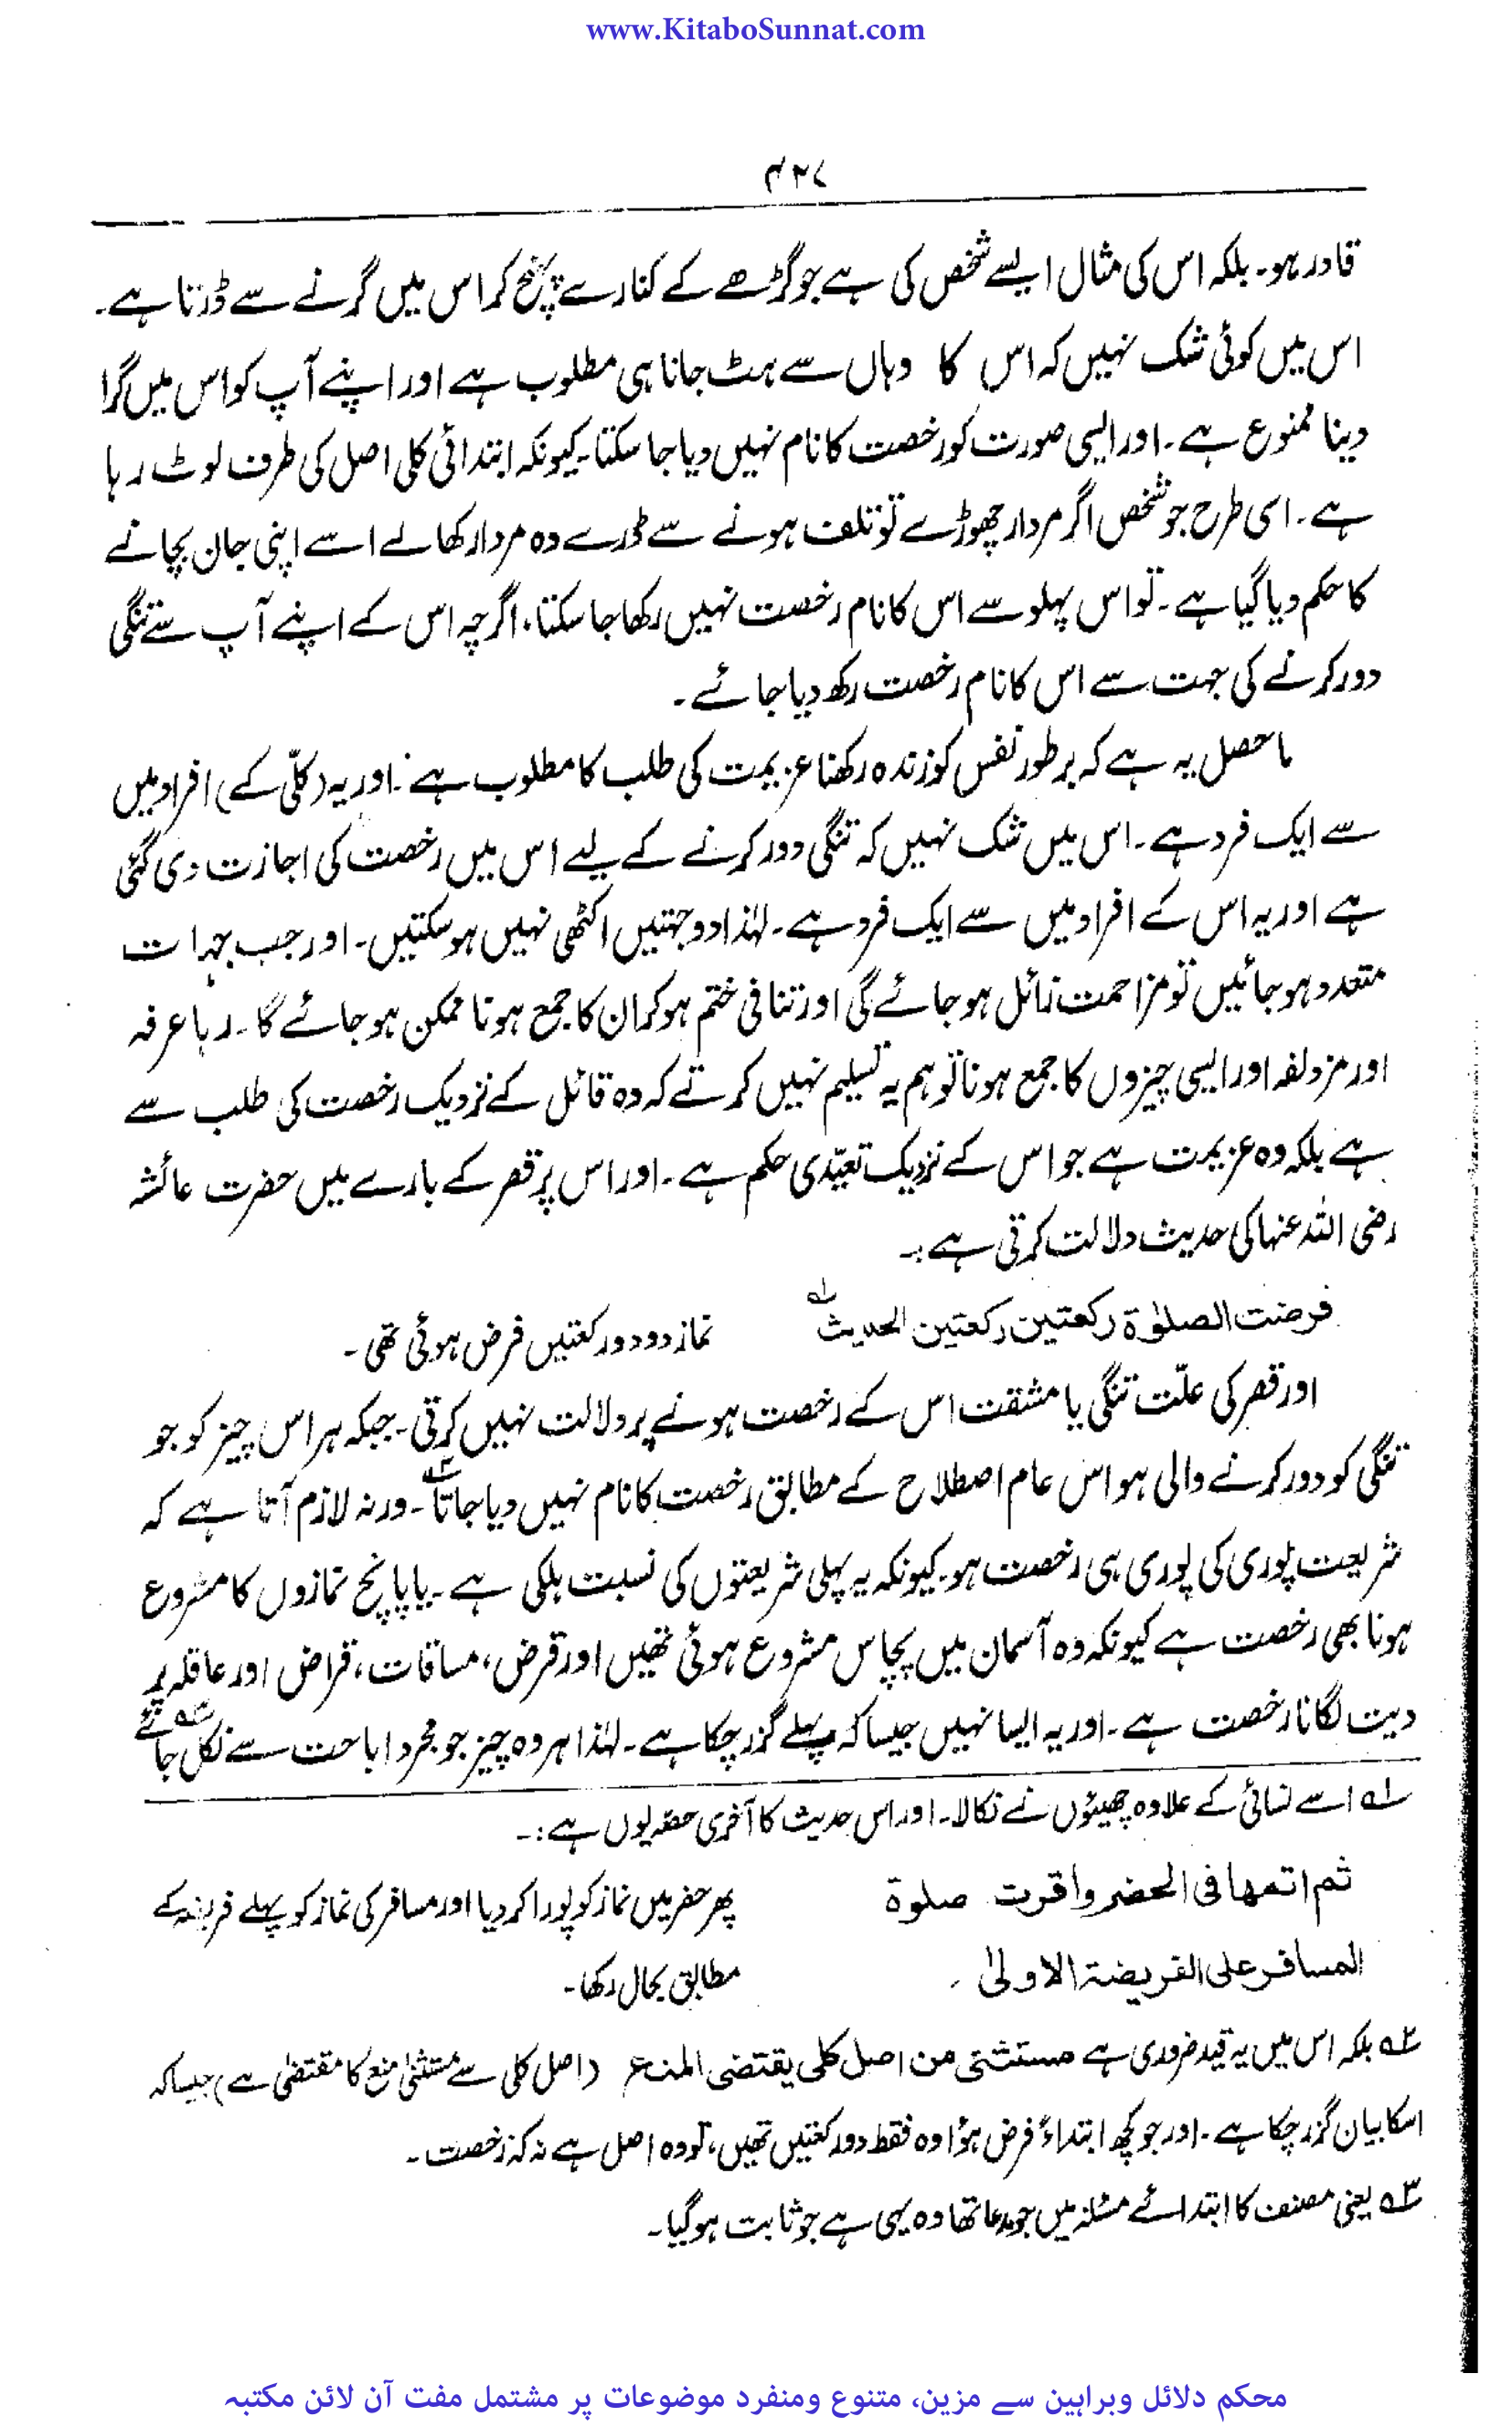 www.KitaboSunnat.com
۴۲۷
قادر ہو۔ بلکہ اس کی مثال ایسے شخص کی ہے جو گڑھے کے کنارے پہنچ کر اس میں گرنے سے ڈرتا ہے۔
اس میں کوئی شک نہیں کہ اس کا وہاں سے ہٹ جانا ہی مطلوب ہے اور اپنے آپ کو اس میں گرا
دینا ممنوع ہے۔ اور ایسی صورت کو رخصت کا نام نہیں دیا جا سکتا۔ کیونکہ ابتدائی کلی اصل کی طرف لوٹ رہا
ہے۔ اسی طرح جو شخص اگر مردار چھوڑے تو تلف ہونے سے ڈرے وہ مردار کھا لے اسے اپنی جان بچانے
کا حکم دیا گیا ہے۔ تو اس پہلو سے اس کا نام رخصت نہیں رکھا جا سکتا، اگرچہ اس کے اپنے آپ سے تنگی
دور کرنے کی جہت سے اس کا نام رخصت رکھ دیا جائے۔
ماحصل یہ ہے کہ بہ طور نفس کو زندہ رکھنا عزیمت کی طلب کا مطلوب ہے۔ اور یہ (کلّی کے) افراد میں
سے ایک فرد ہے۔ اس میں شک نہیں کہ تنگی دور کرنے کے لیے اس میں رخصت کی اجازت دی گئی
ہے اور یہ اس کے افراد میں سے ایک فرد ہے۔ لہٰذا دو جہتیں اکٹھی نہیں ہو سکتیں۔ اور جب جہات
متعدد ہو جائیں تو مزاحمت زائل ہو جائے گی اور تنافی ختم ہو کر ان کا جمع ہونا ممکن ہو جائے گا۔ رہا عرفہ
اور مزدلفہ اور ایسی چیزوں کا جمع ہونا تو ہم یہ تسلیم نہیں کرتے کہ وہ قائل کے نزدیک رخصت کی طلب سے
ہے بلکہ وہ عزیمت ہے جو اس کے نزدیک تعبّدی حکم ہے۔ اور اس پر قصر کے بارے میں حضرت عائشہ
رضی اللہ عنہا کی حدیث دلالت کرتی ہے:۔
فرضت الصلوٰة رکعتین رکعتین الحدیث ۱؎ نماز دو دو رکعتیں فرض ہوئی تھی۔
اور قصر کی علّت تنگی یا مشقت اس کے رخصت ہونے پر دلالت نہیں کرتی۔ جبکہ ہر اس چیز کو جو
تنگی کو دور کرنے والی ہو اس عام اصطلاح کے مطابق رخصت کا نام نہیں دیا جاتا ۲؎۔ ورنہ لازم آتا ہے کہ
شریعت پوری کی پوری ہی رخصت ہو۔ کیونکہ یہ پہلی شریعتوں کی نسبت ہلکی ہے۔ یا پانچ نمازوں کا مشروع
ہونا بھی رخصت ہے کیونکہ وہ آسمان میں پچاس مشروع ہوئی تھیں اور قرض، مساقات، قراض اور عاقلہ پر
دیت لگانا رخصت ہے۔ اور یہ ایسا نہیں جیسا کہ پہلے گزر چکا ہے۔ لہٰذا ہر وہ چیز جو مجرد اباحت سے نکل جائے ۳؎
۱؎ اسے نسائی کے علاوہ چھیئوں نے نکالا۔ اور اس حدیث کا آخری حصہ یوں ہے:۔
ثم اتمها فی الحضر واقرت صلوة پھر حضر میں نماز کو پورا کر دیا اور مسافر کی نماز کو پہلے فریضہ کے
المسافر علی الفریضة الاولیٰ۔ مطابق بحال رکھا۔
۲؎ بلکہ اس میں یہ قید ضروری ہے مستثنی من اصل کلی یقتضی المنع (اصل کلی سے مستثنیٰ منع کا مقتضیٰ ہے) جیسا کہ
اسکا بیان گزر چکا ہے۔ اور جو کچھ ابتداءً فرض ہوا وہ فقط دو رکعتیں تھیں، تو وہ اصل ہے نہ کہ رخصت۔
۳؎ یعنی مصنف کا ابتدائے مسئلہ میں جو مدعا تھا وہ یہی ہے جو ثابت ہو گیا۔
محکم دلائل وبراہین سے مزین، متنوع ومنفرد موضوعات پر مشتمل مفت آن لائن مکتبہ